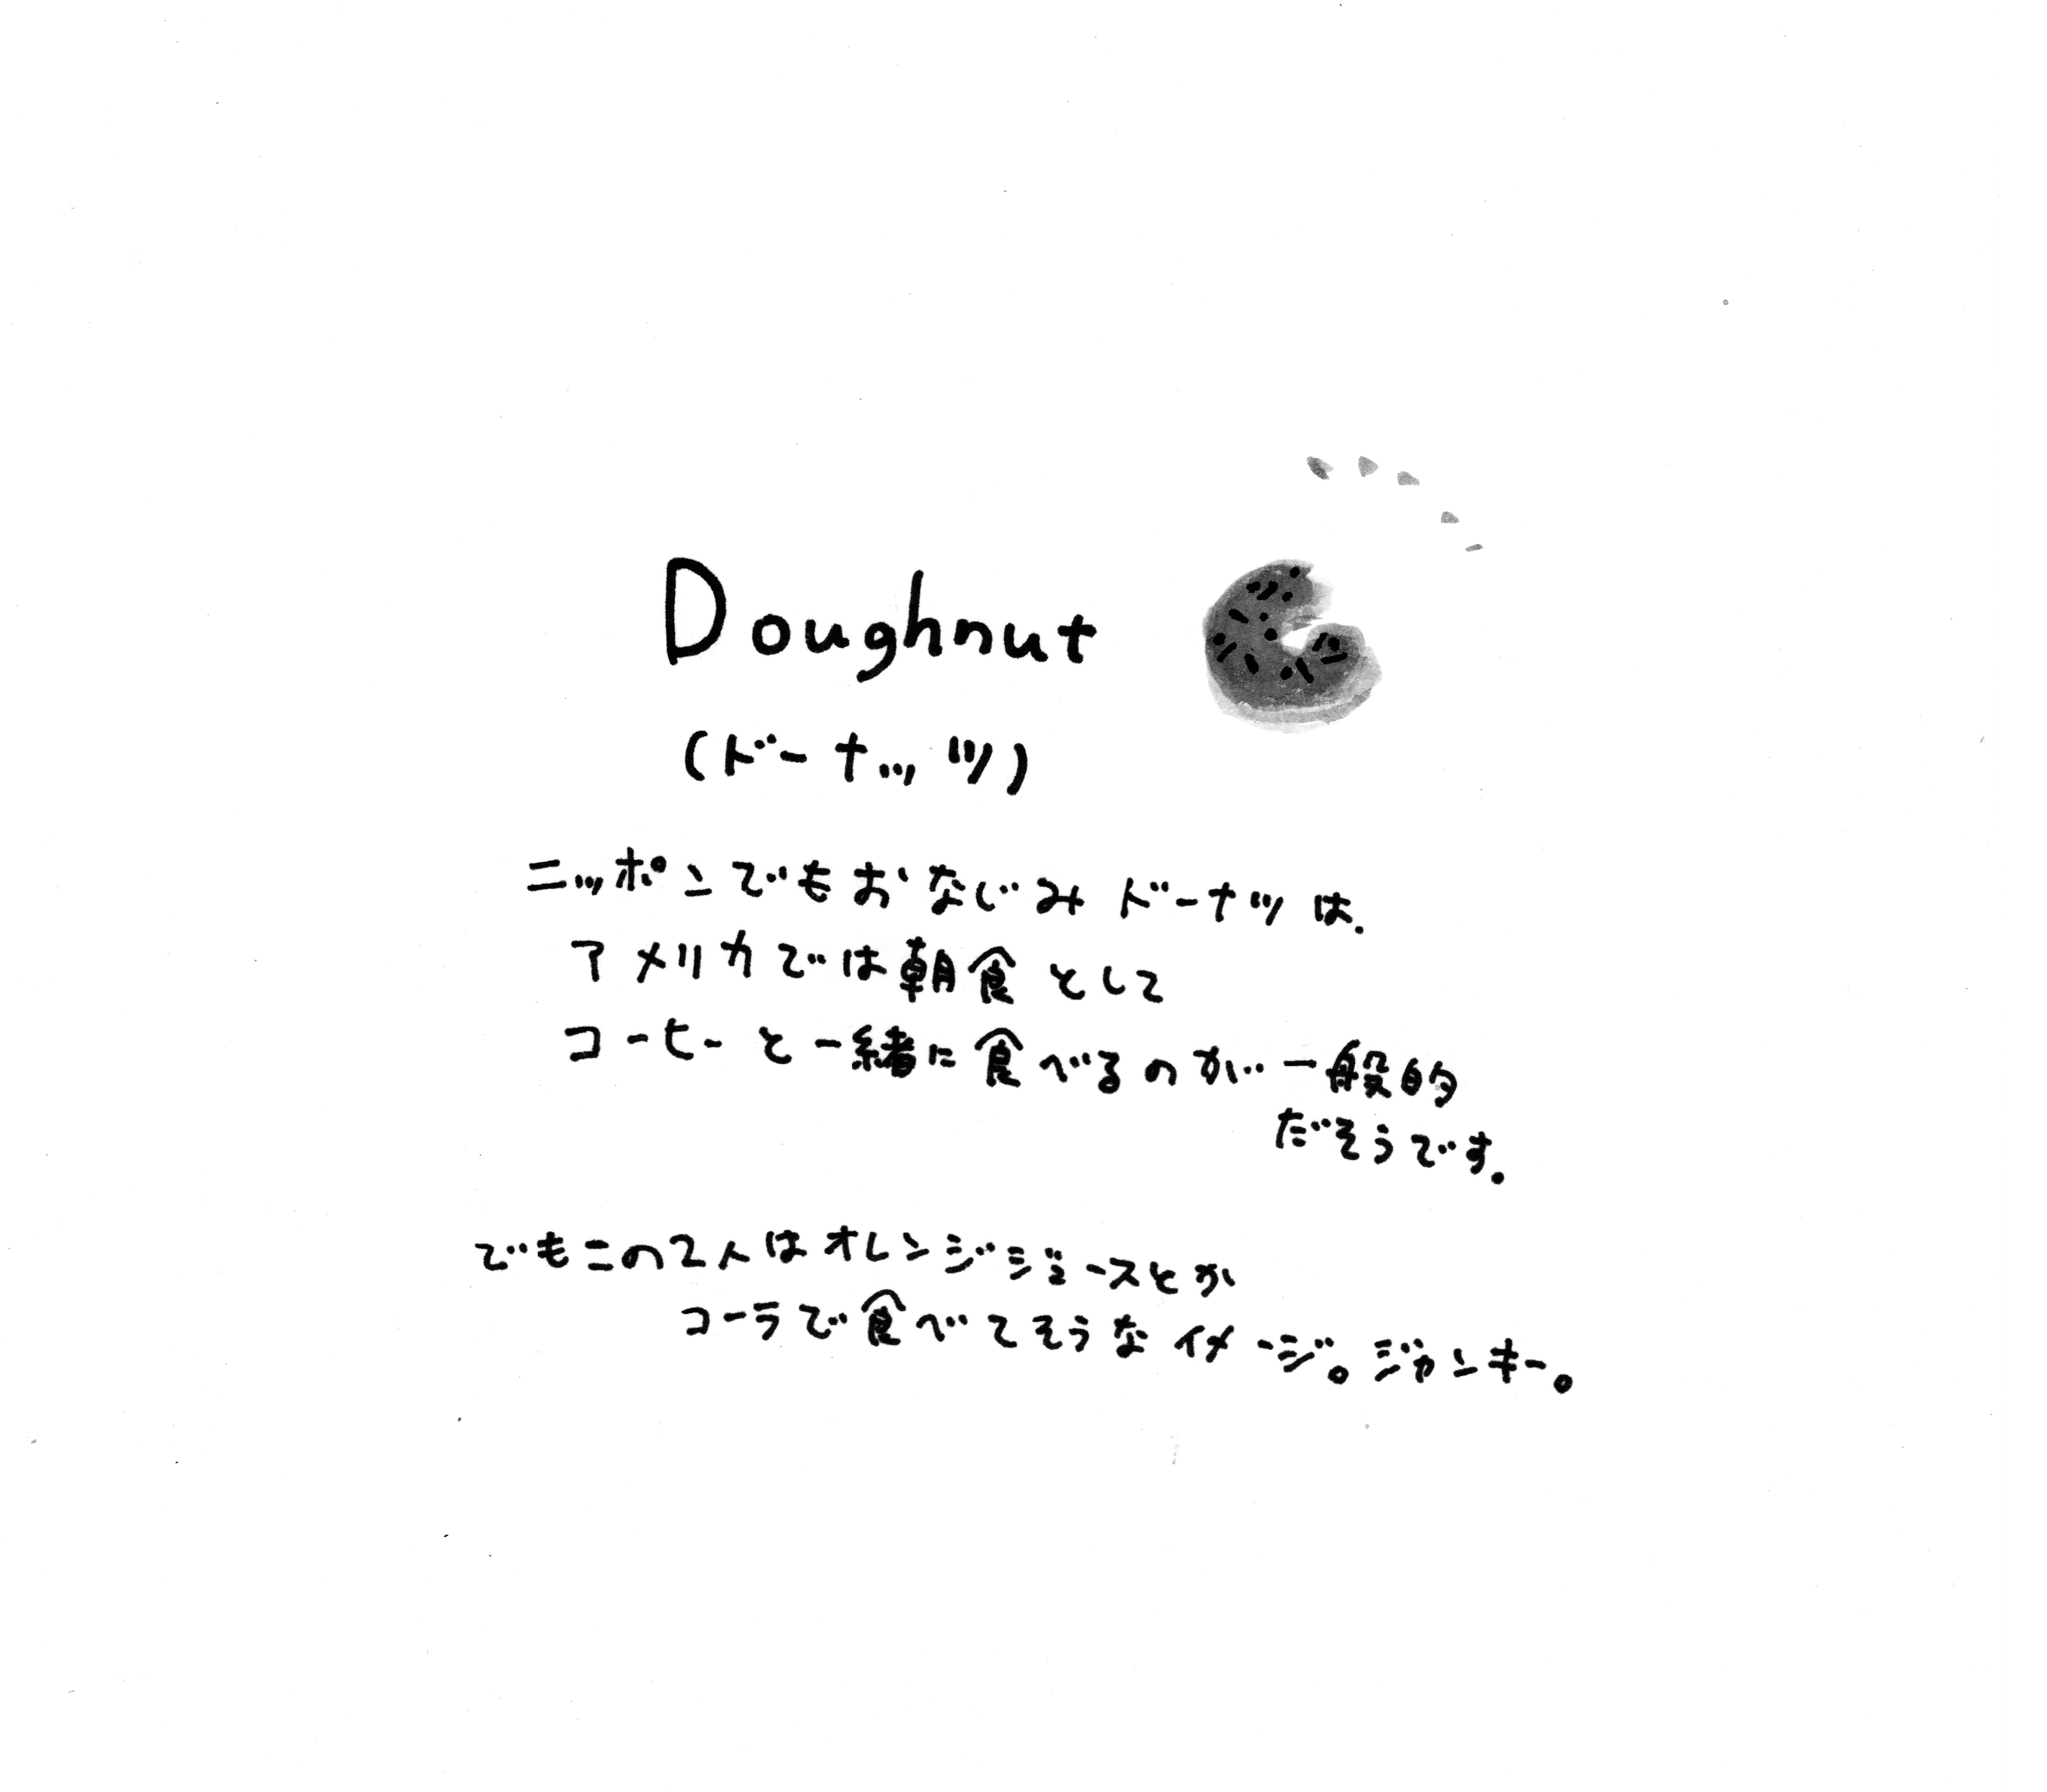 Doughnut
(ドーナッツ)
ニッポンでもおなじみドーナツは、
アメリカでは朝食として
コーヒーと一緒に食べるのが一般的
だそうです。
でもこの2人はオレンジジュースとか
コーラで食べてそうなイメージ。ジャンキー。